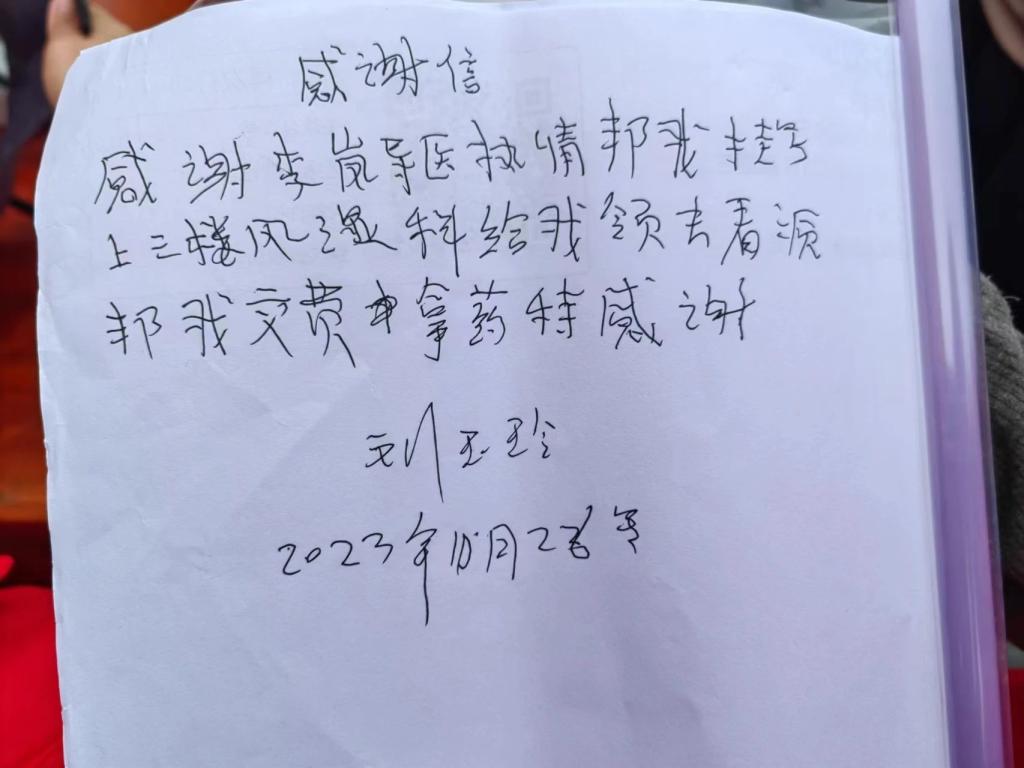 感谢信
感谢李岚导医热情邦我挂号
上三楼风湿科给我领去看病
邦我交费 拿药特感谢
刘玉玲
2023年10月2